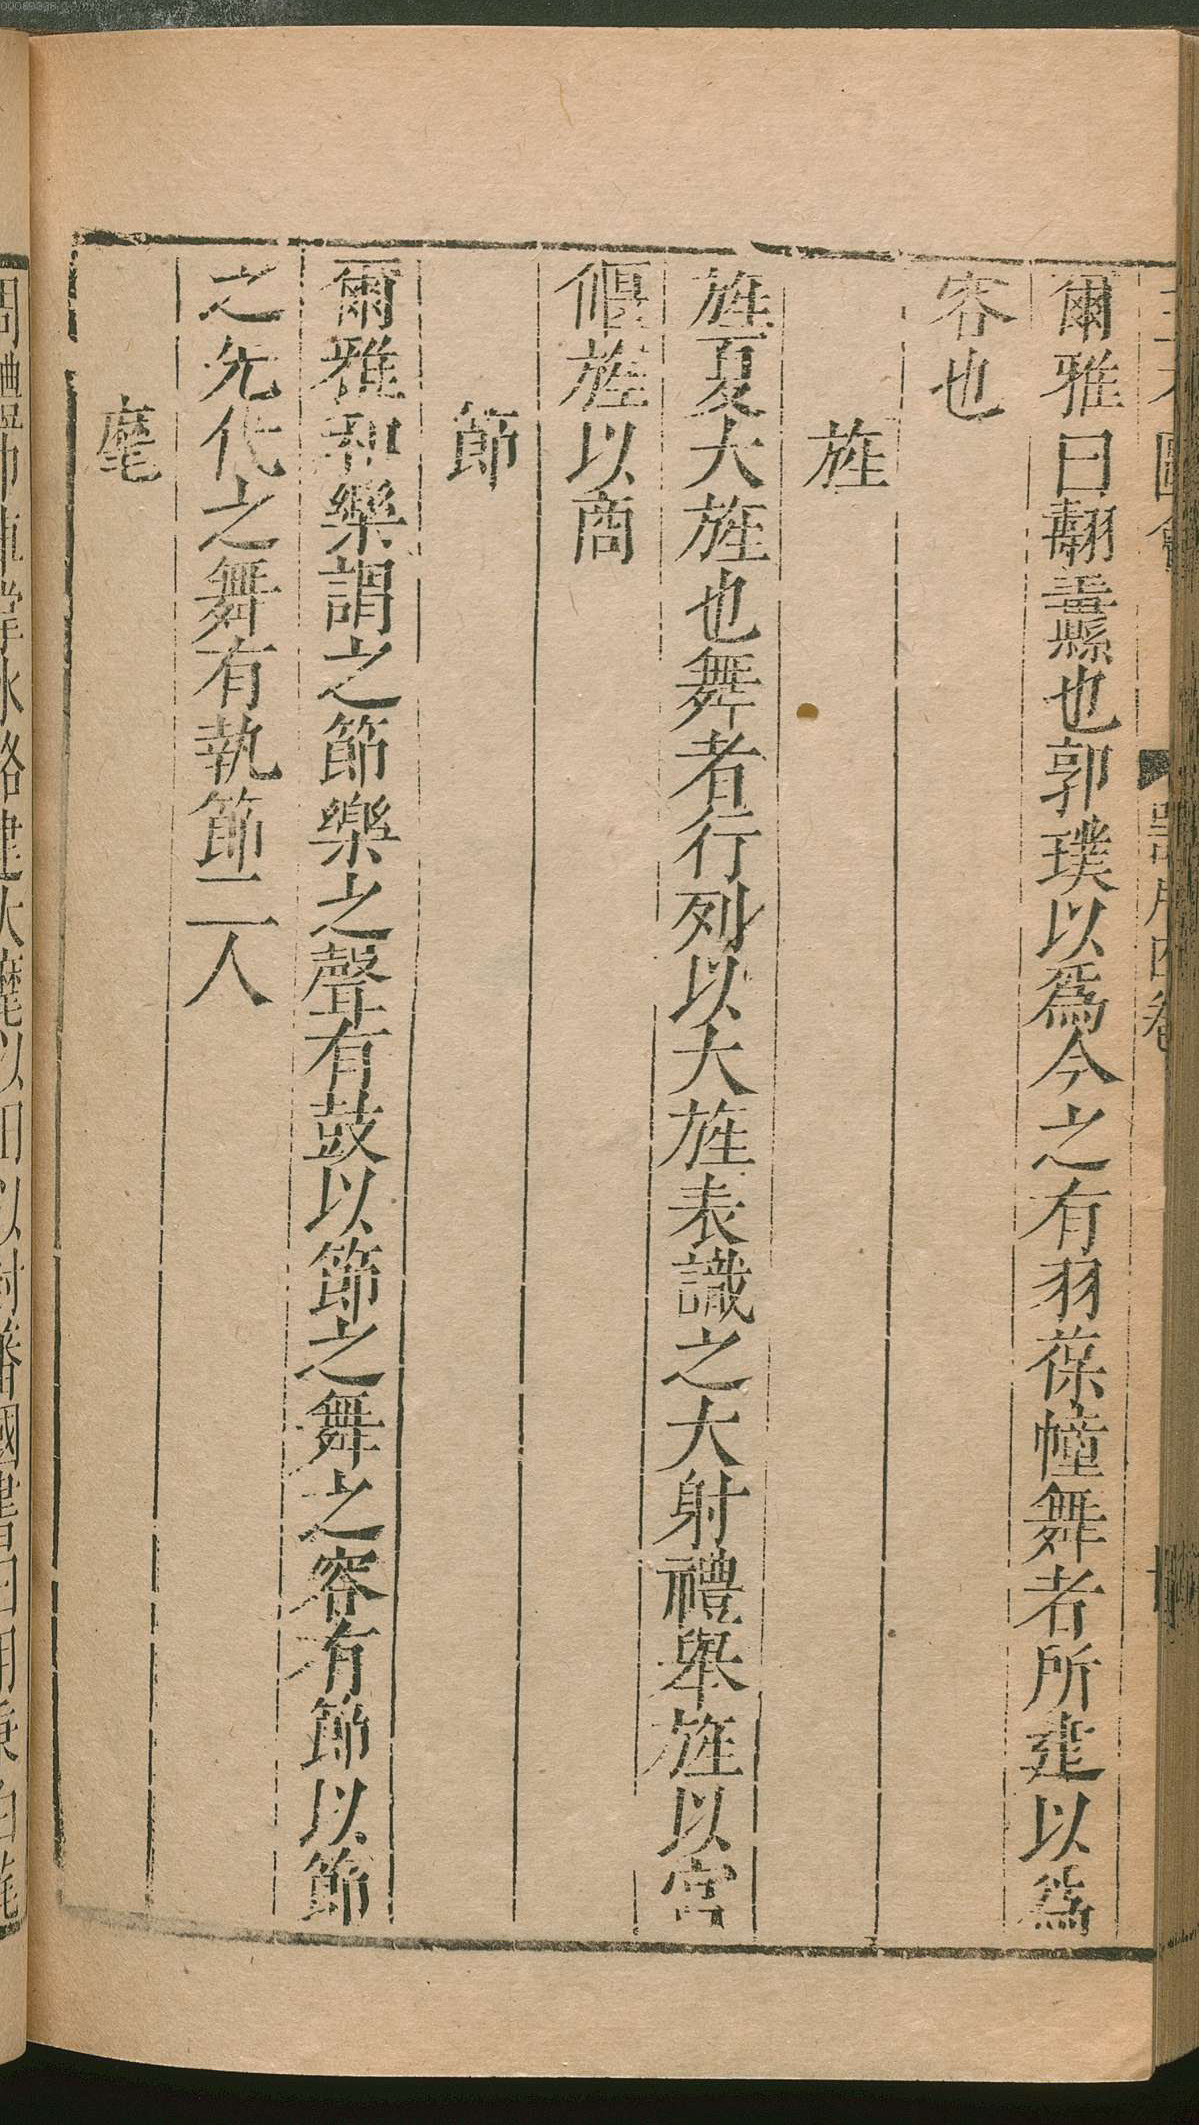 爾雅曰翿纛也郭璞以爲今之有羽葆幢舞者所建以爲
容也
旌
旌夏大旌也舞者行列以大旌表識之大射禮舉旌以宮
偃旌以商
節
爾雅和樂謂之節樂之聲有鼓以節之舞之容有節以節
之先代之舞有執節二人
麾